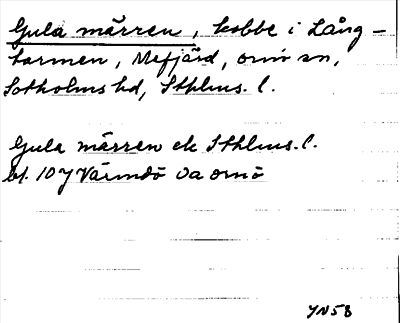 Gula märren, kobbe i Lång-
tarmen, Mefjärd, ornö sn,
Sotholms hd, Sthlms. l.
Gula märren ek Sthlms. l.
bl. 107 Värmdö Va ornö
YN58